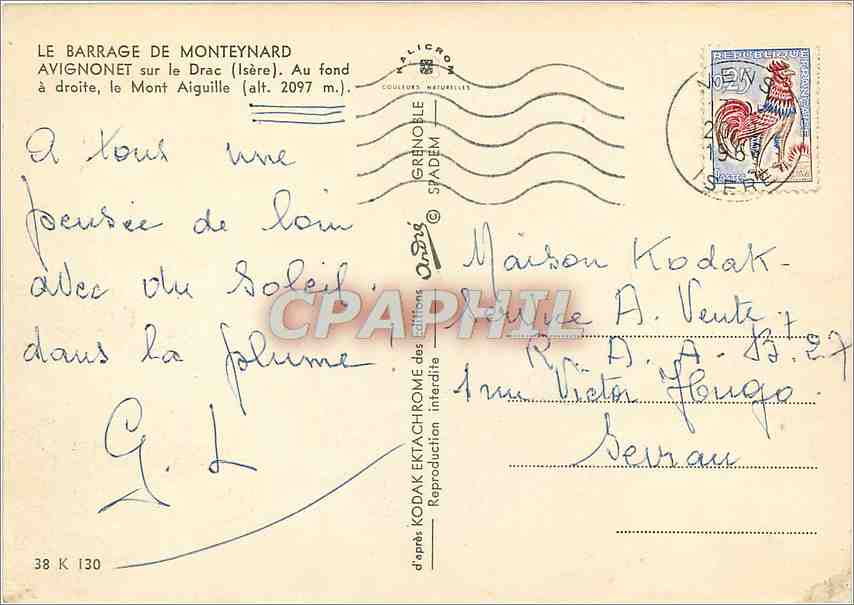 LE BARRAGE DE MONTEYNARD
AVIGNONET sur le Drac (Isère). Au fond
à droite, le Mont Aiguille (alt. 2097 m.).
A tous une
pensée de loin
avec du soleil
dans la plume !
G. L
38 K 130
HALICROM
COULEURS NATURELLES
d'après KODAK EKTACHROME des Editions andré GRENOBLE
Reproduction interdite © SPADEM
REPUBLIQUE FRANÇAISE
0,25
POSTES
ISERE
CPAPHIL
Maison Kodak-
Service A. Vente,
R. A. A. B. 27
1 rue Victor Hugo.
Sevran